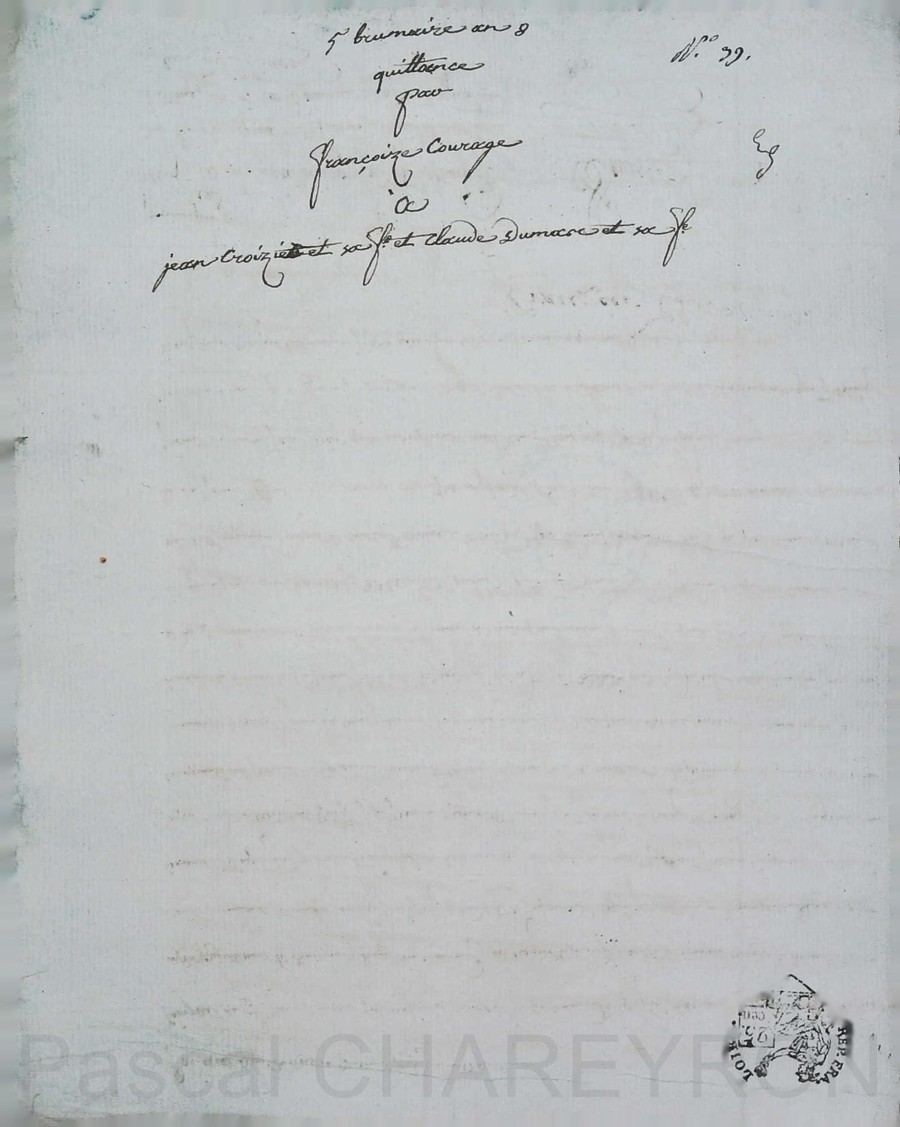 5 brumaire an 8
N.° 99.
quittance
par
françoize Courage
à
jean Croizier et sa f.e et Claude Dumare et sa f.e
LOIR
REP. FRA
Pascal CHAREYRON